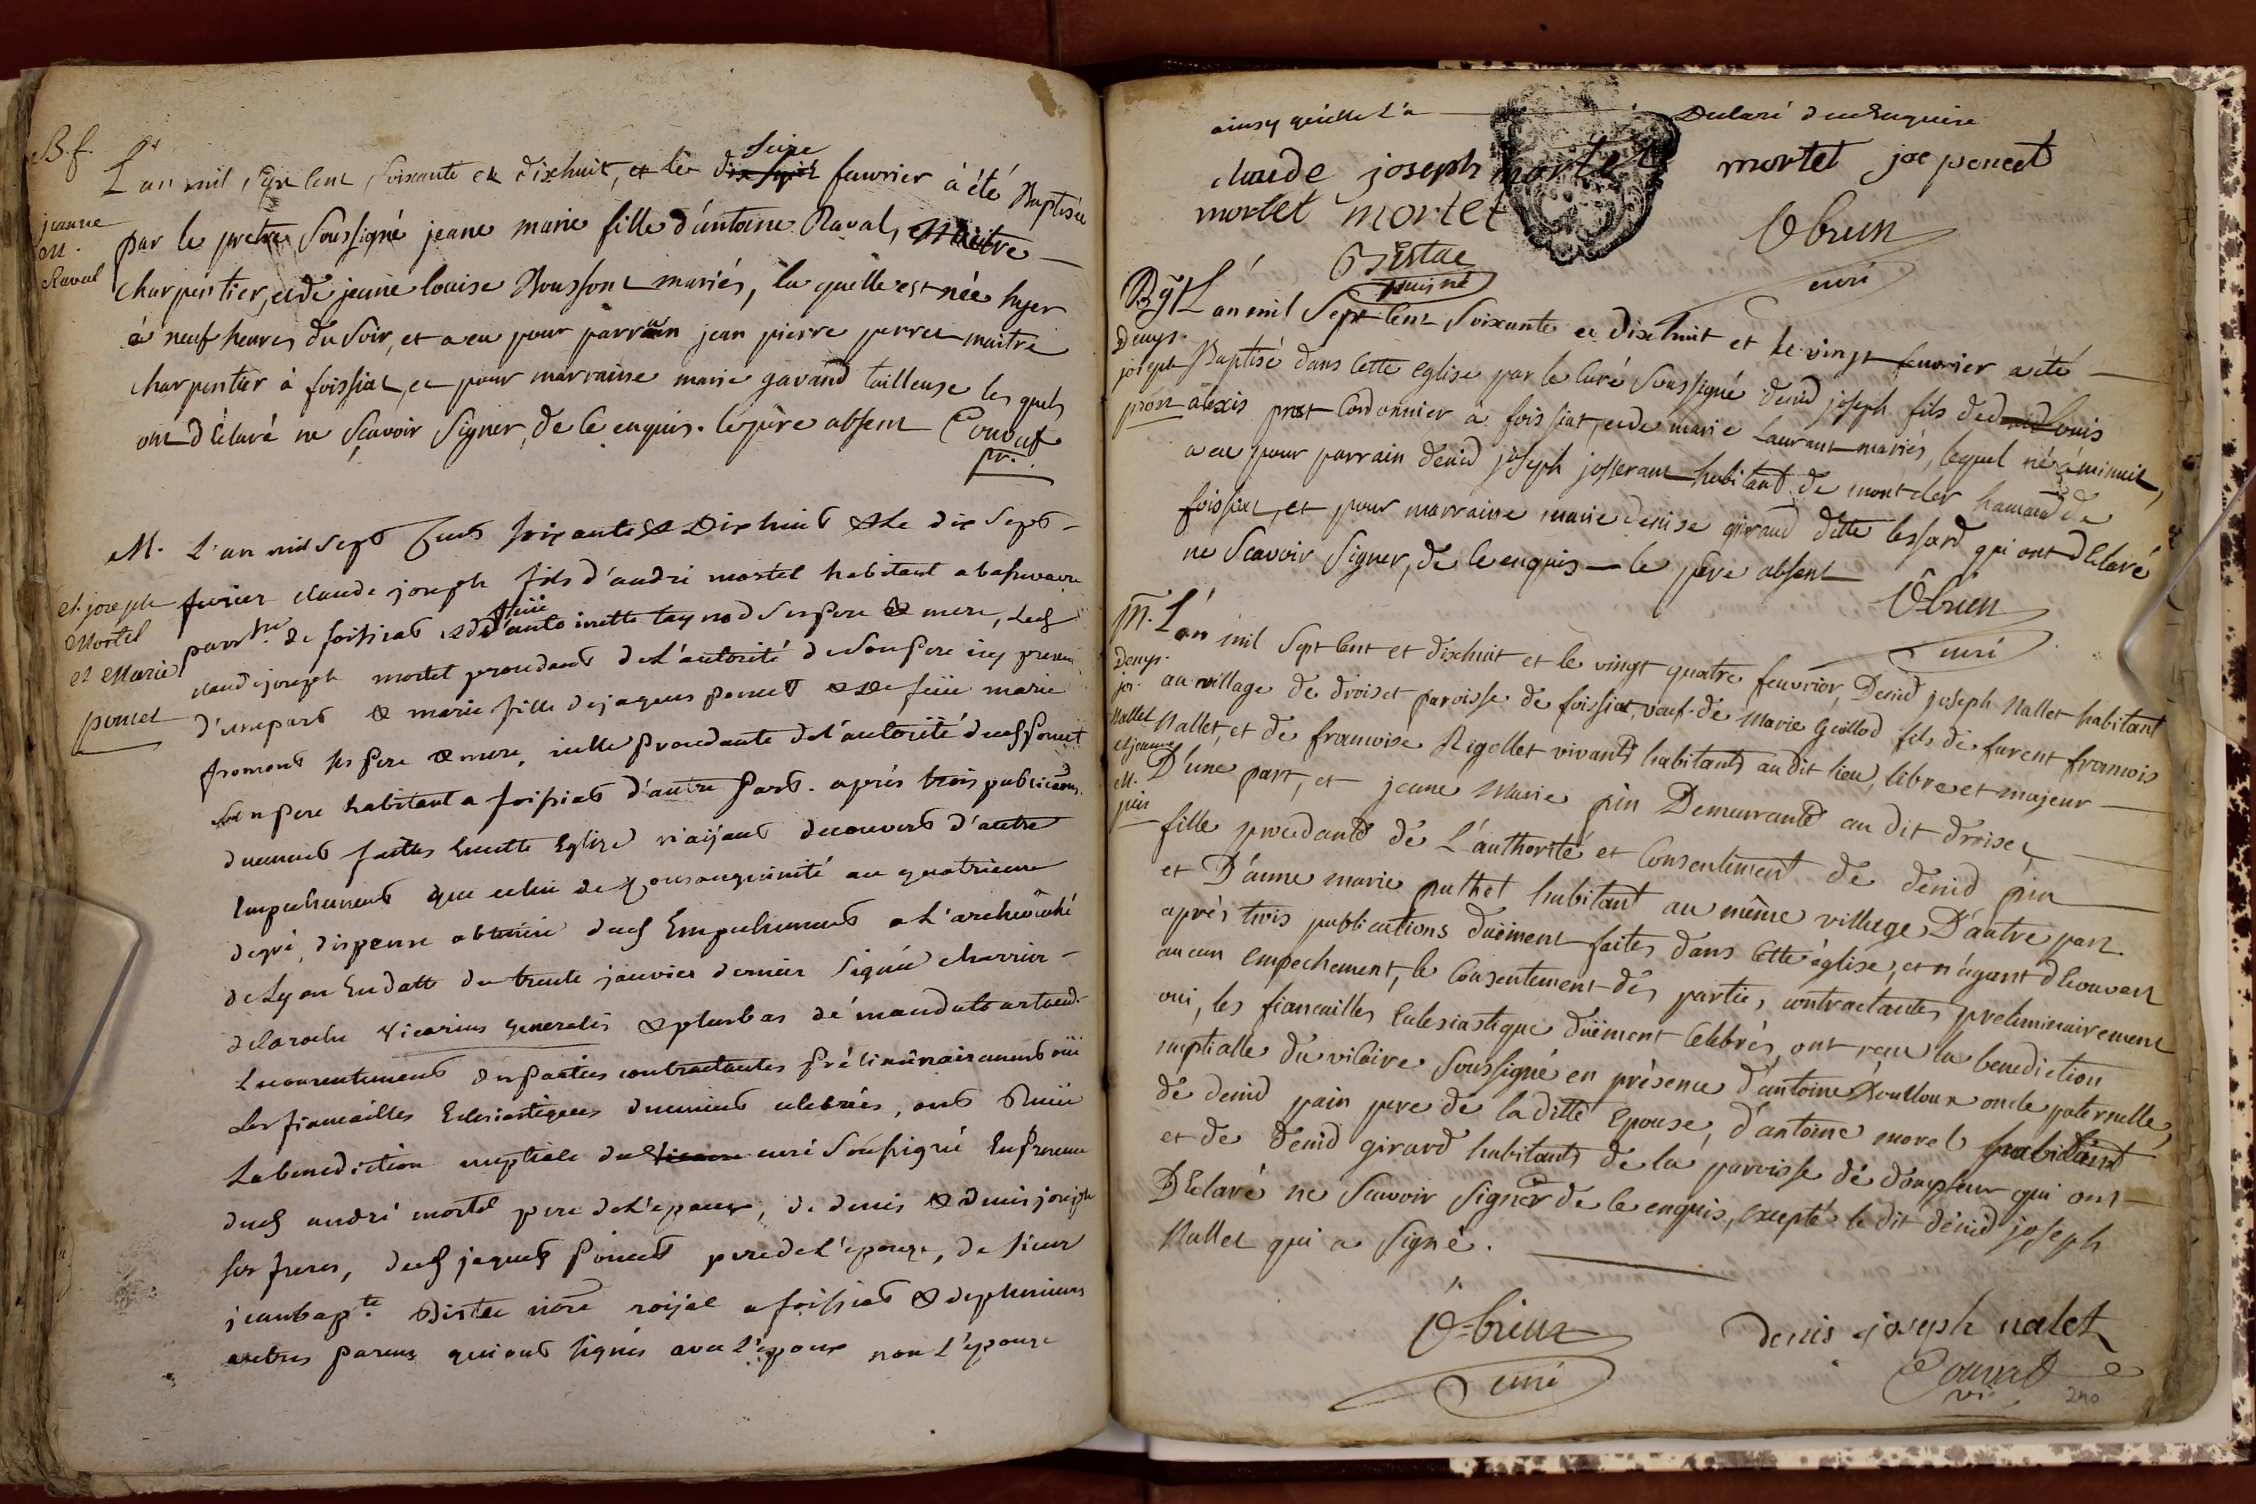 B. f.
L'an mil sept cent soixante et dixhuit, et le dix sept seize feuvrier à été Baptisée
jeanne
M.
Raval
par le pretre soussigné jeane marie fille d'antoine Raval, Maitre
charpentier, et de jeane louise Bousson mariés, la quelle est née hyer
à neuf heures du soir, et a eu pour parrain jean pierre perret maitre
charpentier à foissiat, et pour marraine marie gavand tailleuse les quels
ont déclaré ne sçavoir signer, de ce enquis. le père absent
M.
L'an mil sept cents soixante & dix huit & le dix sept
cl. joseph
Mortel
et Marie
poncet
fevrier claude joseph fils d'andré mortel habitant a
parr.sse de foissiat & de feüe antoinette taynod ses pere & mere, led
claude joseph mortel procedant de l'autorité de son pere icy present
d'une part & marie fille de jaques poncet & de feüe marie
fromont ses pere & mere, icelle procedante de l'autorité dud poncet
son pere habitant a foissiat d'autre part. après trois publications
duement faittes en cette Eglise n'aijant decouvert d'autre
Empechement que celui de consanguinité au quatrieme
degré, dispense obtenüe dud Empechement a l'archevêché
de Lyon En datte du trente janvier dernier signée charrier
delaroche Vicarius generalis & plus bas de mandato
le consentement des parties contractantes préliminairement oüi
les fiancailles Eclesiastiques duement celebrées, ont Reçüe
la benediction nuptiale du curé soussigné En presence
dud andré mortel pere de l'epoux, de denis & denis joseph
ses freres, dud jaques poncet pere de l'epouse, de sieur
jean bap.te Distac roijal a foissiat & de plusieurs
autres parens qui ont signés avec l'epoux non l'epouse
ainsy qu'elle l'a declaré de ce Enquise
claude joseph mortel mortel joe poncet
mortel mortet
Distac
puisné
Obrun
curé
Bpt L'an mil sept cent soixante et dixhuit et le vingt feuvrier a été
Denys
joseph
prost
Baptisé dans cette eglise par le curé soussigné denid joseph fils de denid louis
alexis prost cordonnier a foissiat, et de marie Laurant mariés, lequel né à minuit,
a eu pour parrain denid joseph josserant habitant de montcler hamau de
foissiat, et pour marraine marie denise giraud ditte lessard qui ont déclaré
ne scavoir signer, de ce enquis le père absent
Obrun
curé
M. L'an mil sept cent et dixhuit et le vingt quatre feuvrier, Denid joseph Nallet habitant
Denys
jos.
Nallet
et jeanne
M.
pin
au village de droiset paroisse de foissiat, veuf de Marie Guillod fils de furent francois
Nallet, et de francoise Rigollet vivants habitants audit lieu, libre et majeur
D'une part, et jeane Marie pin Demeurante au dit droiset,
fille procedante de L'authorité et Consentement de denid pin
et D'anne marie puthet habitant au même village D'autre part
après trois publications düement faites dans cette église, et n'ayant découvert
aucun empechement, le Consentement des parties contractantes preliminairement
oui, les fiancailles Eclesiastique düement celebrés, ont reçu la benediction
nuptialle du vicaire soussigné en présence d'antoine oncle paternelle,
de denid pain pere de la ditte epouse, d'antoine morel habitant
et de denid girard habitants de la paroisse de dompteur qui ont
Déclaré ne scavoir signer de ce enquis, excepté le dit denid joseph
Nallet qui a signé.
Obrun
curé
denis joseph nalet
vi.
240